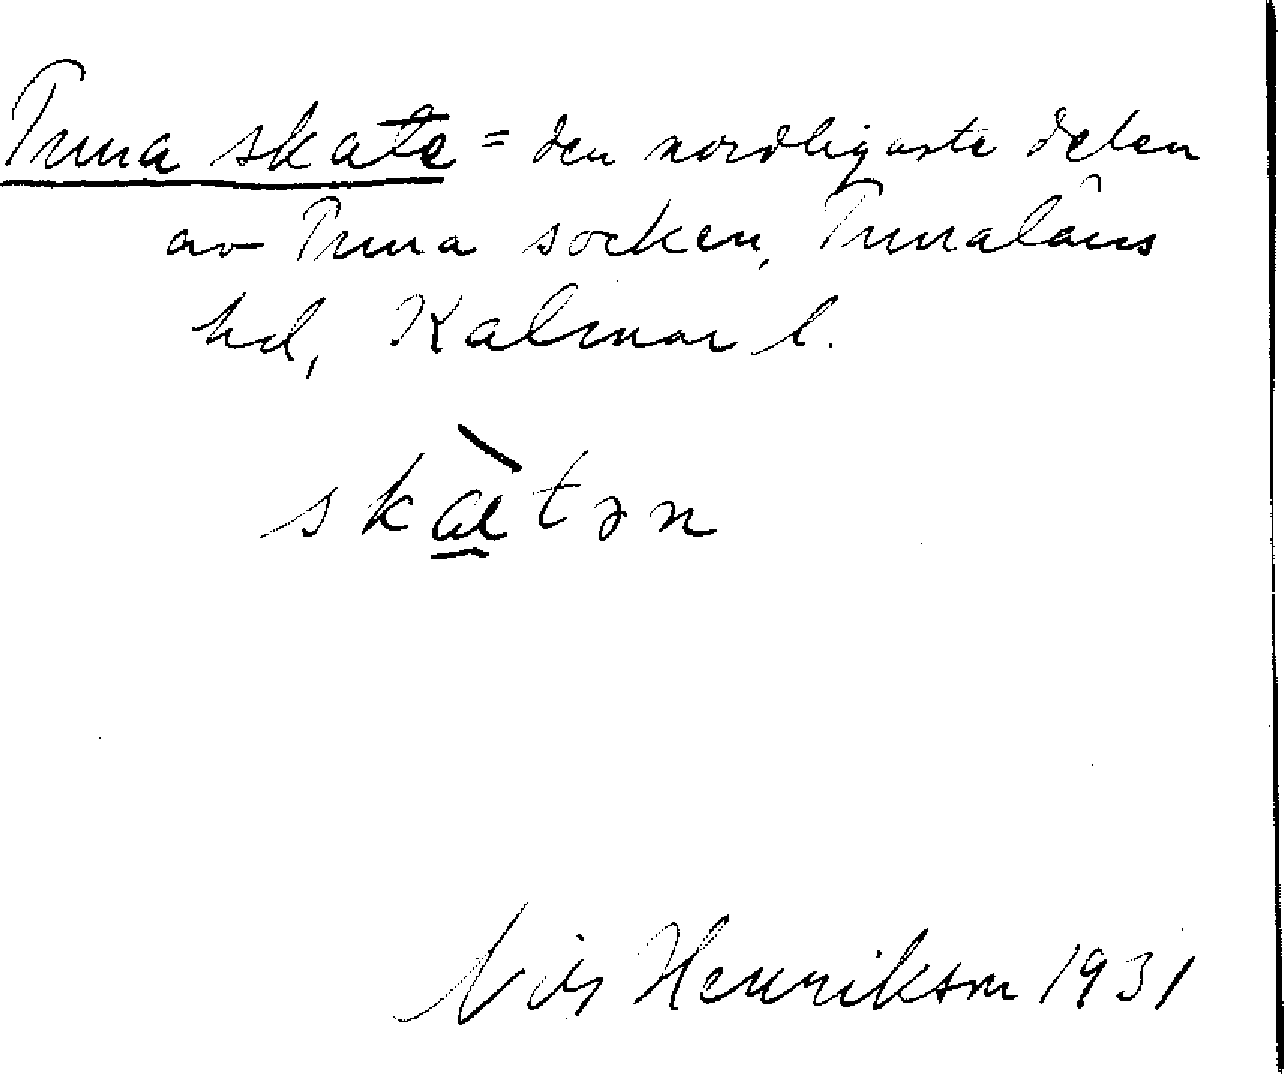 Tuna skate = den nordligaste delen
av Tuna socken, Tunaläns
hd, Kalmar l.
skæ̀tən
Nils Henrikson 1931